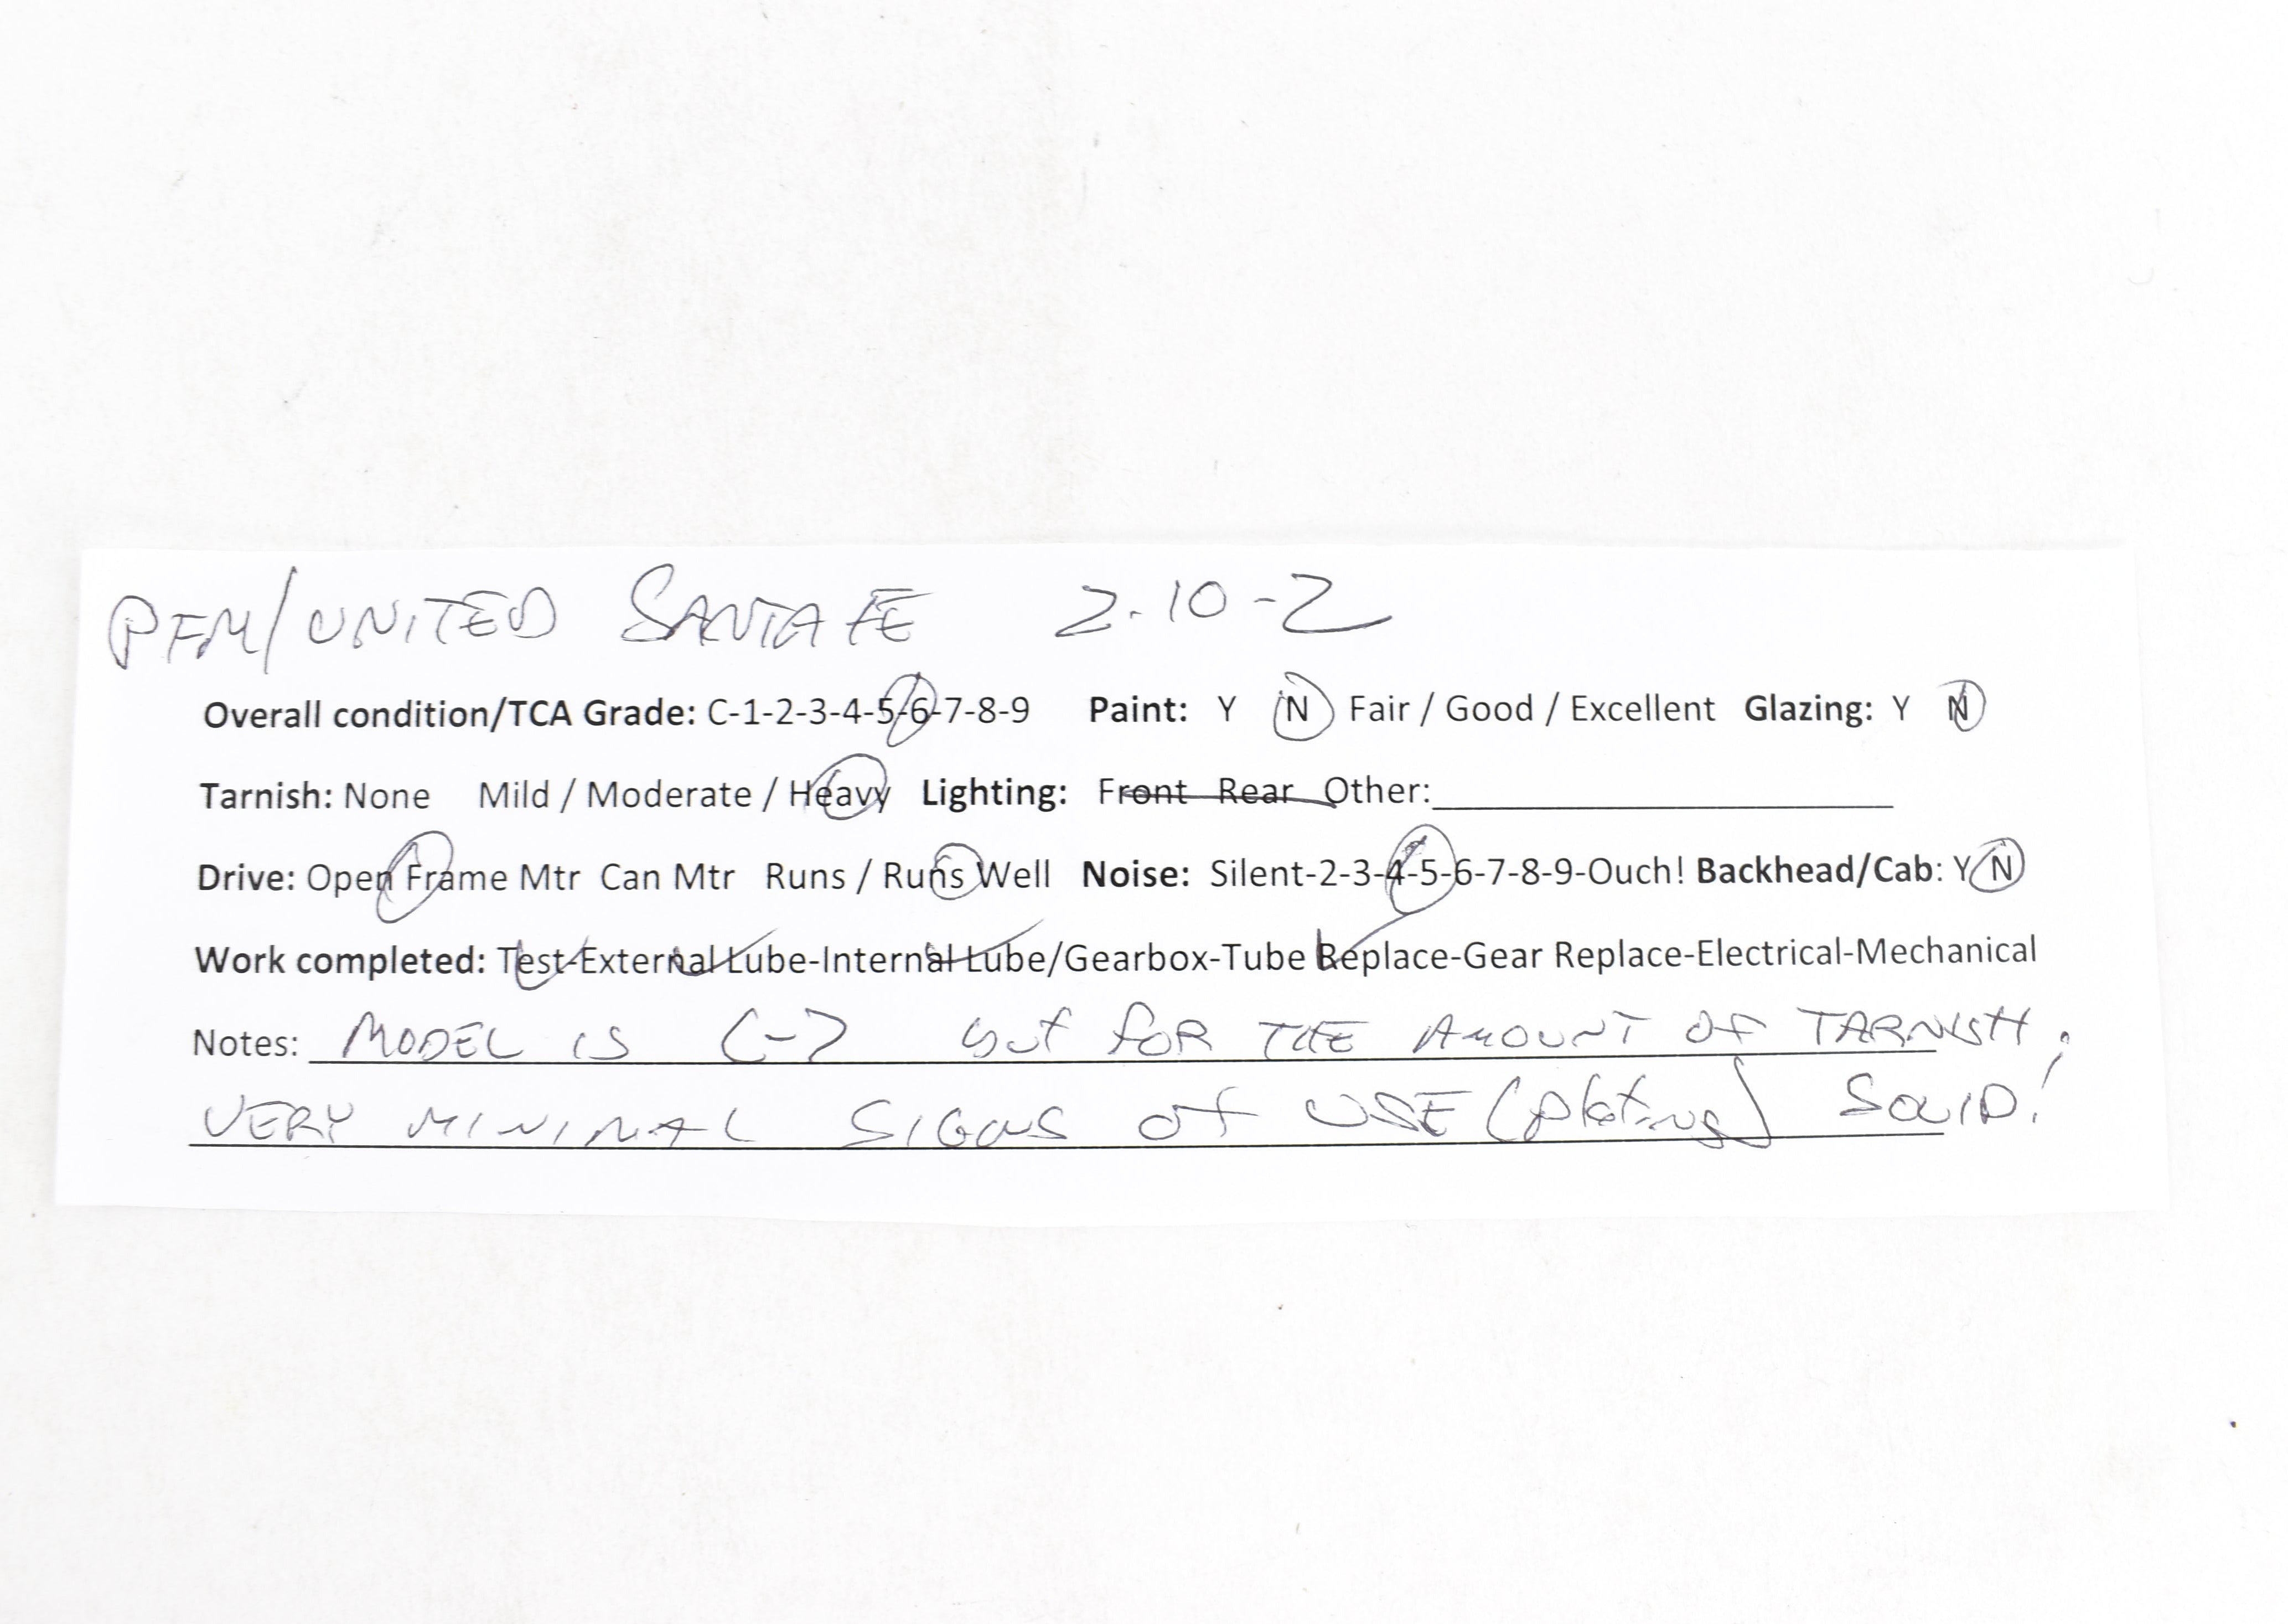 PFM/UNITED SANTA FE 2-10-2
Overall condition/TCA Grade: C-1-2-3-4-5-6-7-8-9 Paint: Y N Fair / Good / Excellent Glazing: Y N
Tarnish: None Mild / Moderate / Heavy Lighting: Front Rear Other:
Drive: Open Frame Mtr Can Mtr Runs / Runs Well Noise: Silent-2-3-4-5-6-7-8-9-Ouch! Backhead/Cab: Y N
Work completed: Test-External Lube-Internal Lube/Gearbox-Tube Replace-Gear Replace-Electrical-Mechanical
Notes: MODEL IS C-7 but foR THE AMOUNT OF TARNISH.
VERY MINIMAL SIGNS Of USE (plating) SOLID!